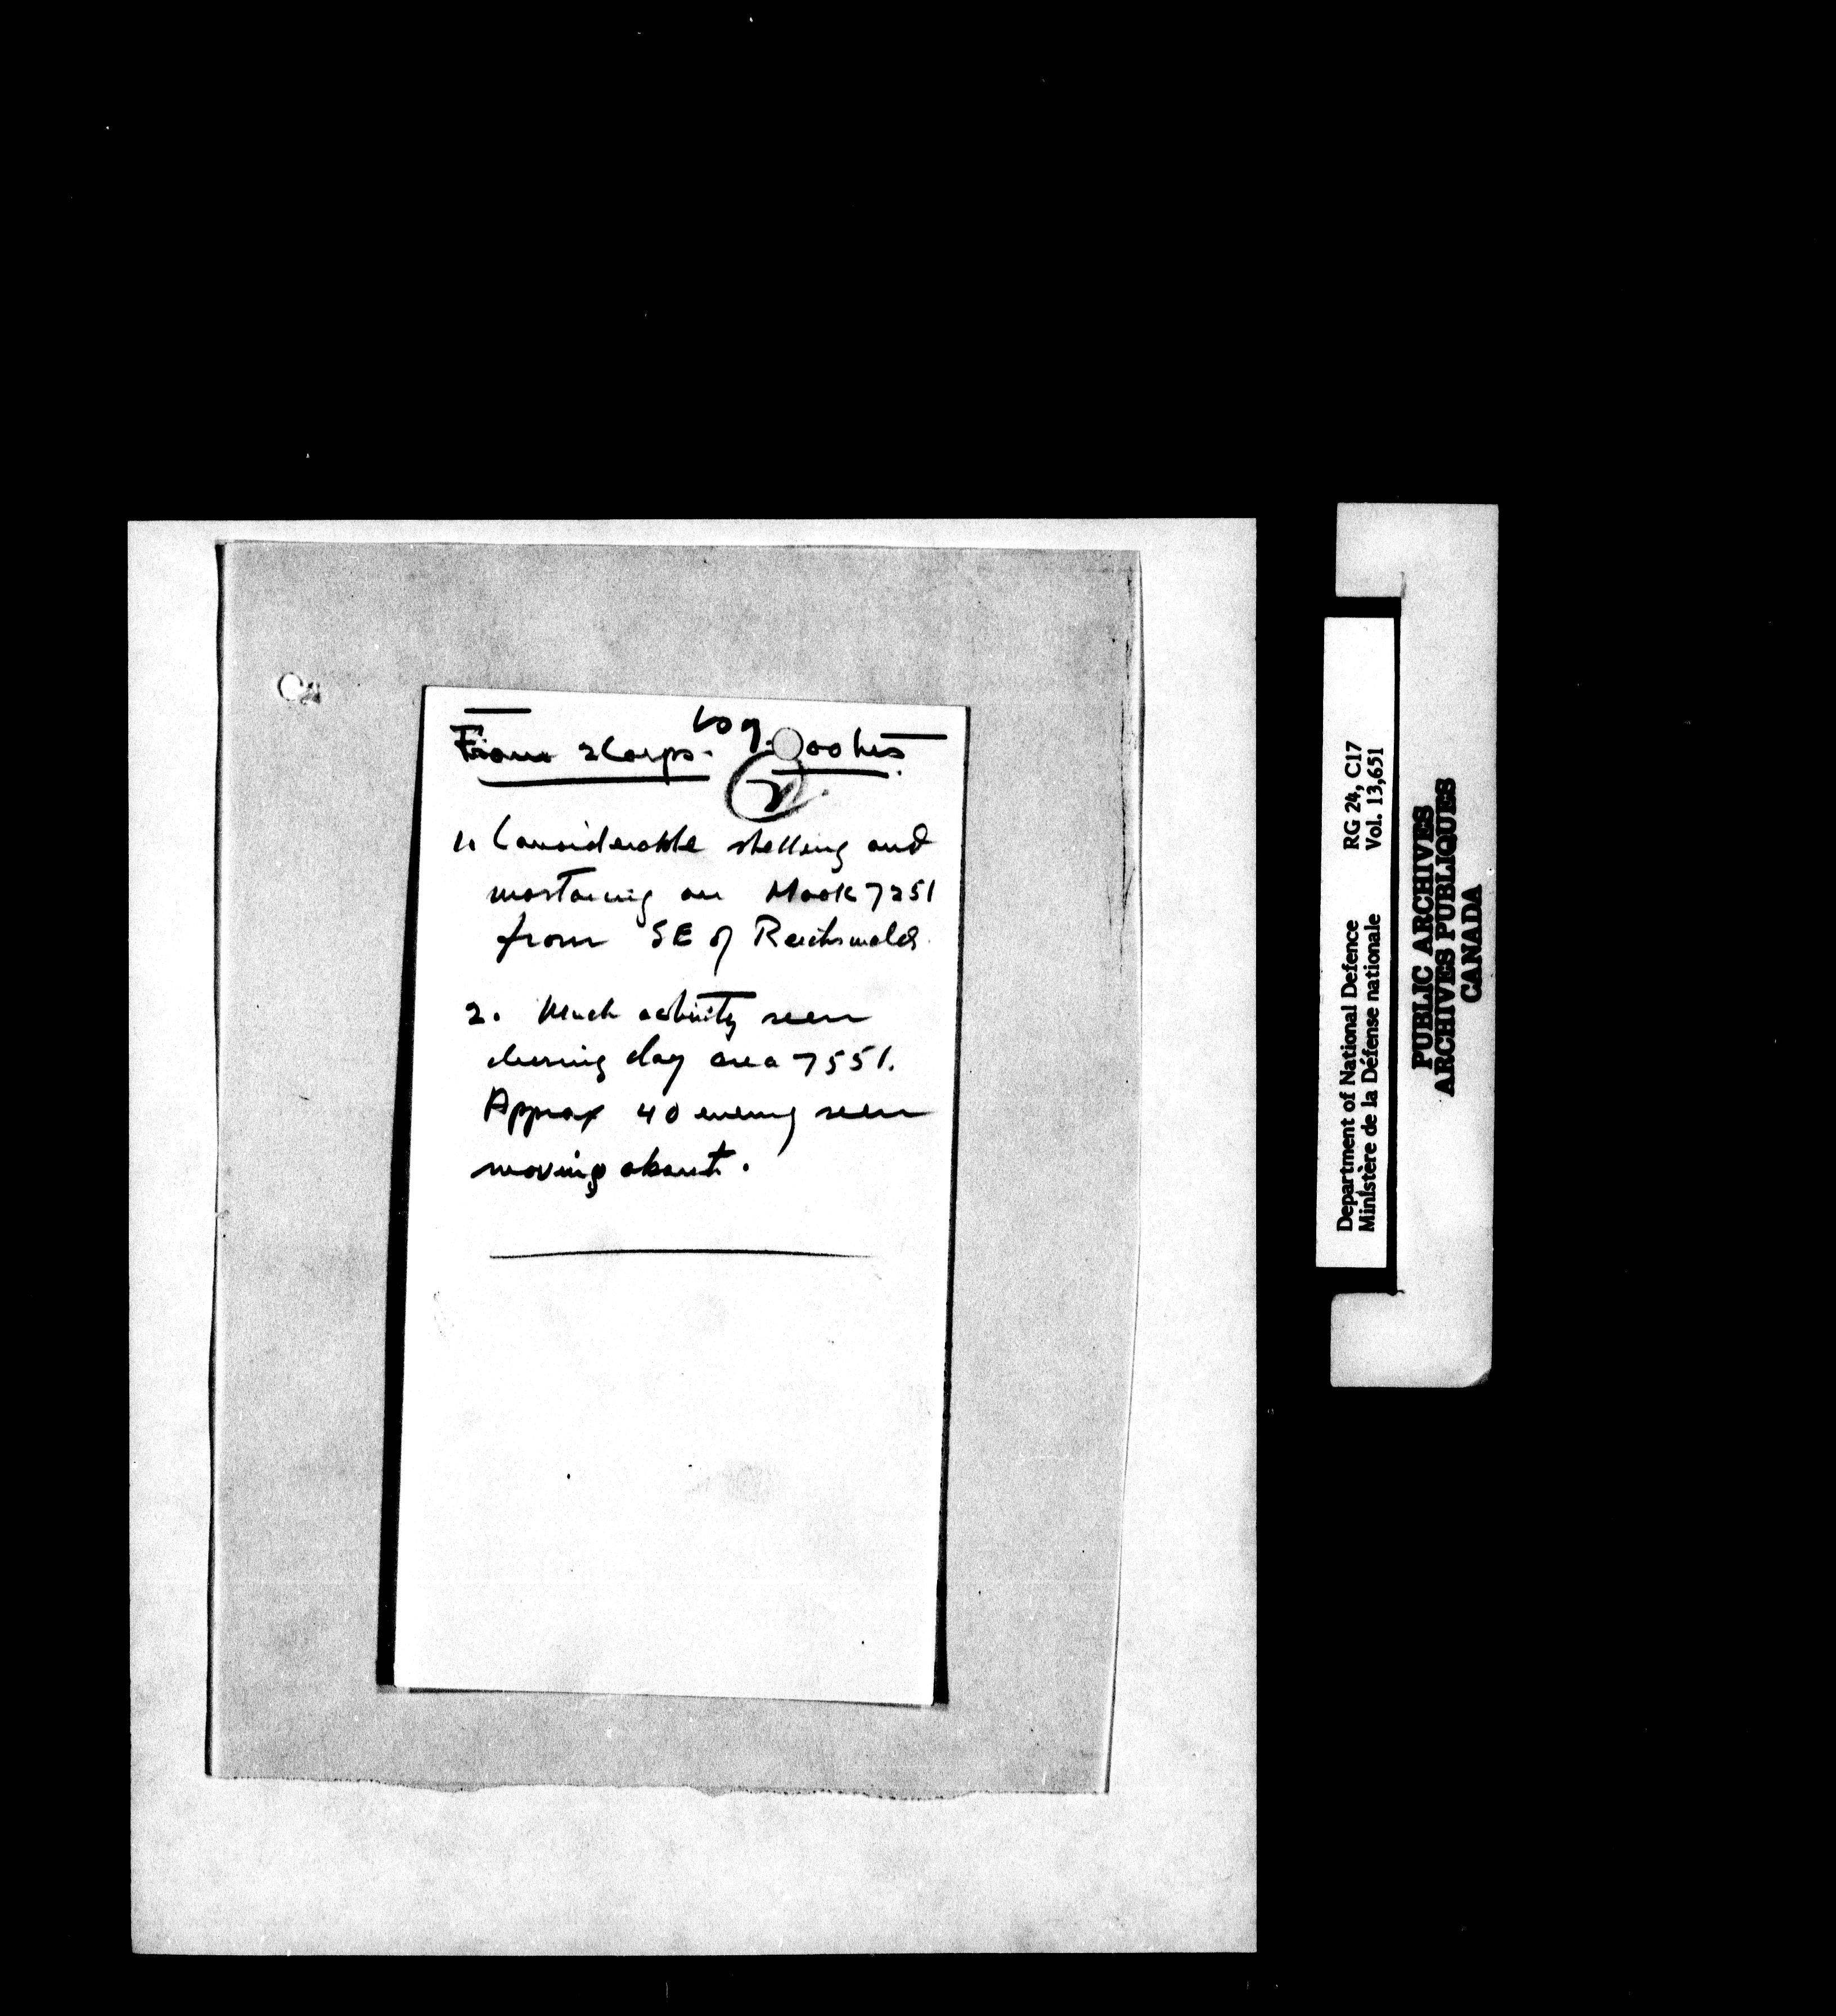 Log.
From 2 Corps. 00 hrs.
2
1. Considerable shelling and
mortaring on Mook 7251
from SE of Reichswald.
2. Much activity seen
during day area 7551.
Approx 40 enemy seen
moving about.
Department of National Defence RG 24, C17
Ministère de la Défense nationale Vol. 13,651
PUBLIC ARCHIVES
ARCHIVES PUBLIQUES
CANADA